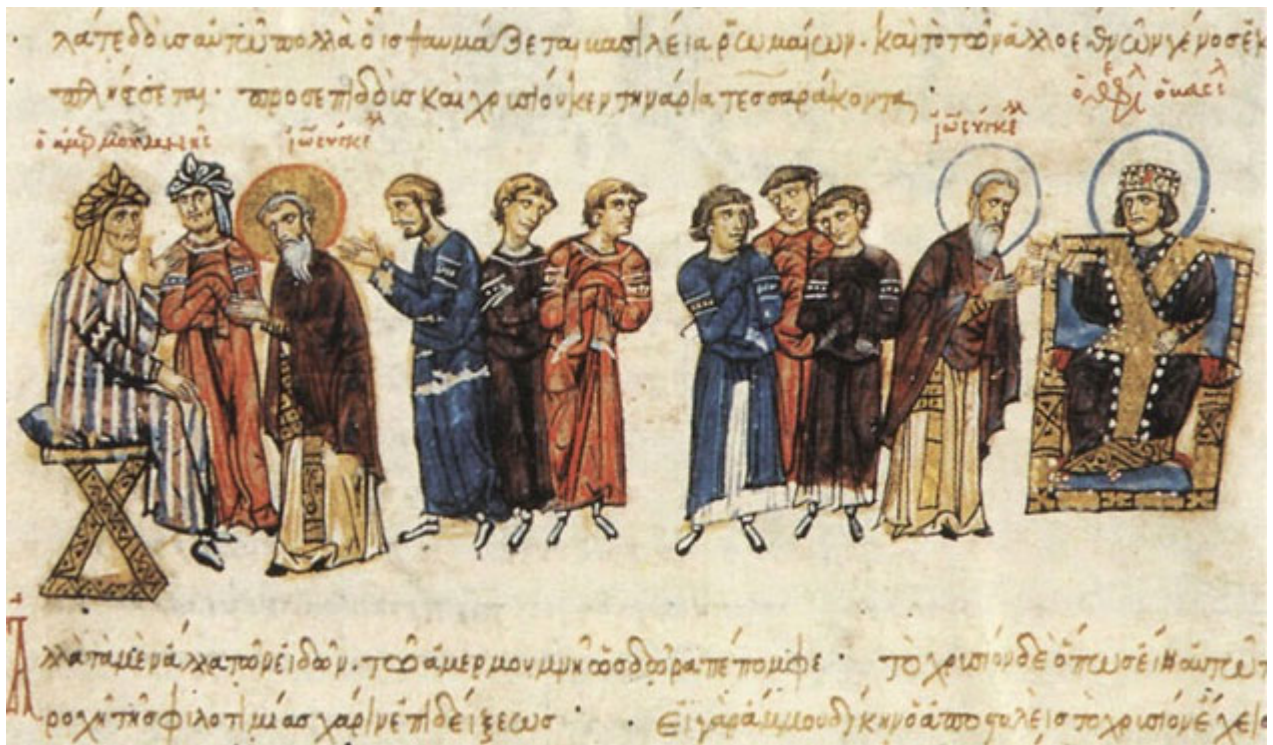 αὐτῶ πολλὰ οἷς θαυμάζεται βασιλεία ῥωμαίων. καὶ τὸ τῶν ἄλλο ἐθνῶν γένος ἐκ
πλήσσεται. προσεπιδοὺς καὶ χρυσίου κεντηνάρια τεσσαράκοντα
ὁ ἀμερμουμνῆς ἰω σύγκελλ
ἰω σύγκελλ
ὁ θεόφιλ ὁ βασιλ
Ἀλλὰ τὰ μὲν ἄλλα τῶ ἀμερμουμνῆ ὡς δῶρα πέπομφε. τὸ χρυσίον δὲ ὅπως εἴη αὐτῶ
ροχὴ τῆς φιλοτιμίας χάριν ἐπιδείξεως εἰ γὰρ ἄμμου δίκην ὁ ἀποσταλεὶς τὸ χρυσίον